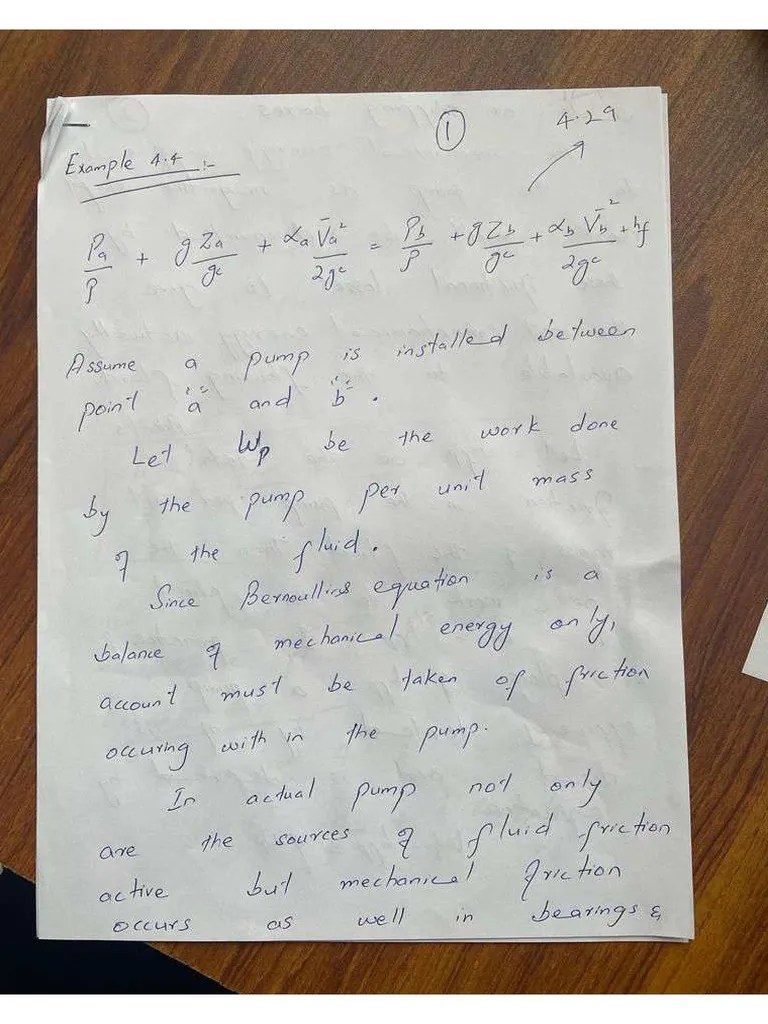 ①
4.29
Example 4.4 :-
Pa/ρ + gZa/gc + αa V̄a²/2gc = Pb/ρ + gZb/gc + αb V̄b²/2gc + hf
Assume a pump is installed between
point "a" and "b".
Let Wp be the work done
by the pump per unit mass
of the fluid.
Since Bernoullins equation is a
balance of mechanical energy only,
account must be taken of friction
occuring with in the pump.
In actual pump not only
are the sources of fluid friction
active but mechanical friction
occurs as well in bearings &